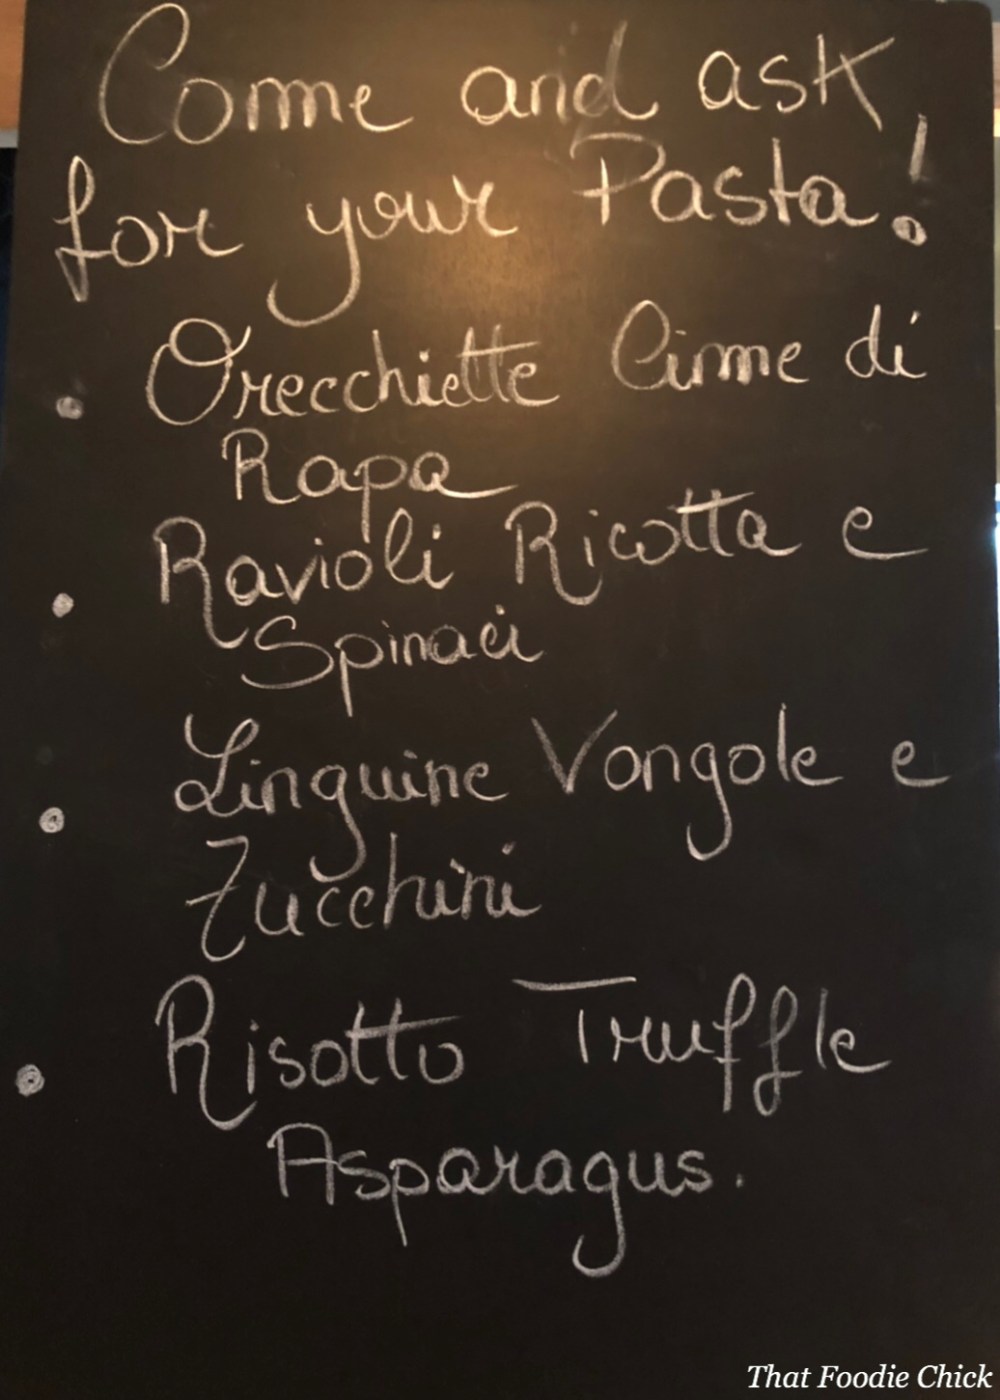 Come and ask
for your Pasta!
• Orecchiette Cime di
Rapa
• Ravioli Ricotta e
Spinaci
• Linguine Vongole e
Zucchini
• Risotto Truffle
Asparagus.
That Foodie Chick